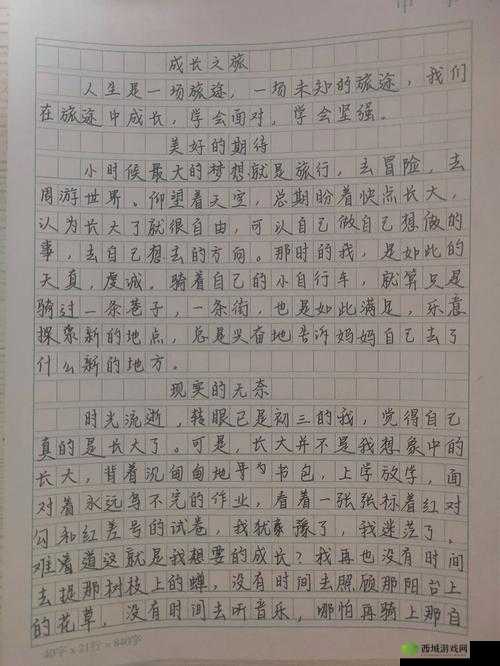 成长之旅
人生是一场旅途，一场未知的旅途，我们
在旅途中成长，学会面对，学会坚强。
美好的期待
小时候最大的梦想就是旅行，去冒险，去
周游世界。仰望着天空，总期盼着快点长大，
认为长大了就很自由，可认自己做自己想做的
事，去自己想去的方向。那时的我，是如此的
天真，虔诚。骑着自己的小自行车，就算只是
骑过一条巷子，一条街，也是如此满足，乐意
探索新的地点，总是兴奋地告诉妈妈自己去了
什么新的地方。
现实的无奈
时光流逝，转眼已是初三的我，觉得自己
真的是长大了。可是，长大并不是我想象中的
长大，背着沉甸甸地书包，上学放学，面
对着永远写不完的作业，看着一张张标着红对
勾和红差号的试卷，我犹豫了，我迷茫了。
难着道这就是我想要的成长？我再也没有时间
去捉那树枝上的蝉，没有时间去照顾那阳台上
的花草，没有时间去听音乐，哪怕再骑上那自
40字×21行=840字
西域游戏网